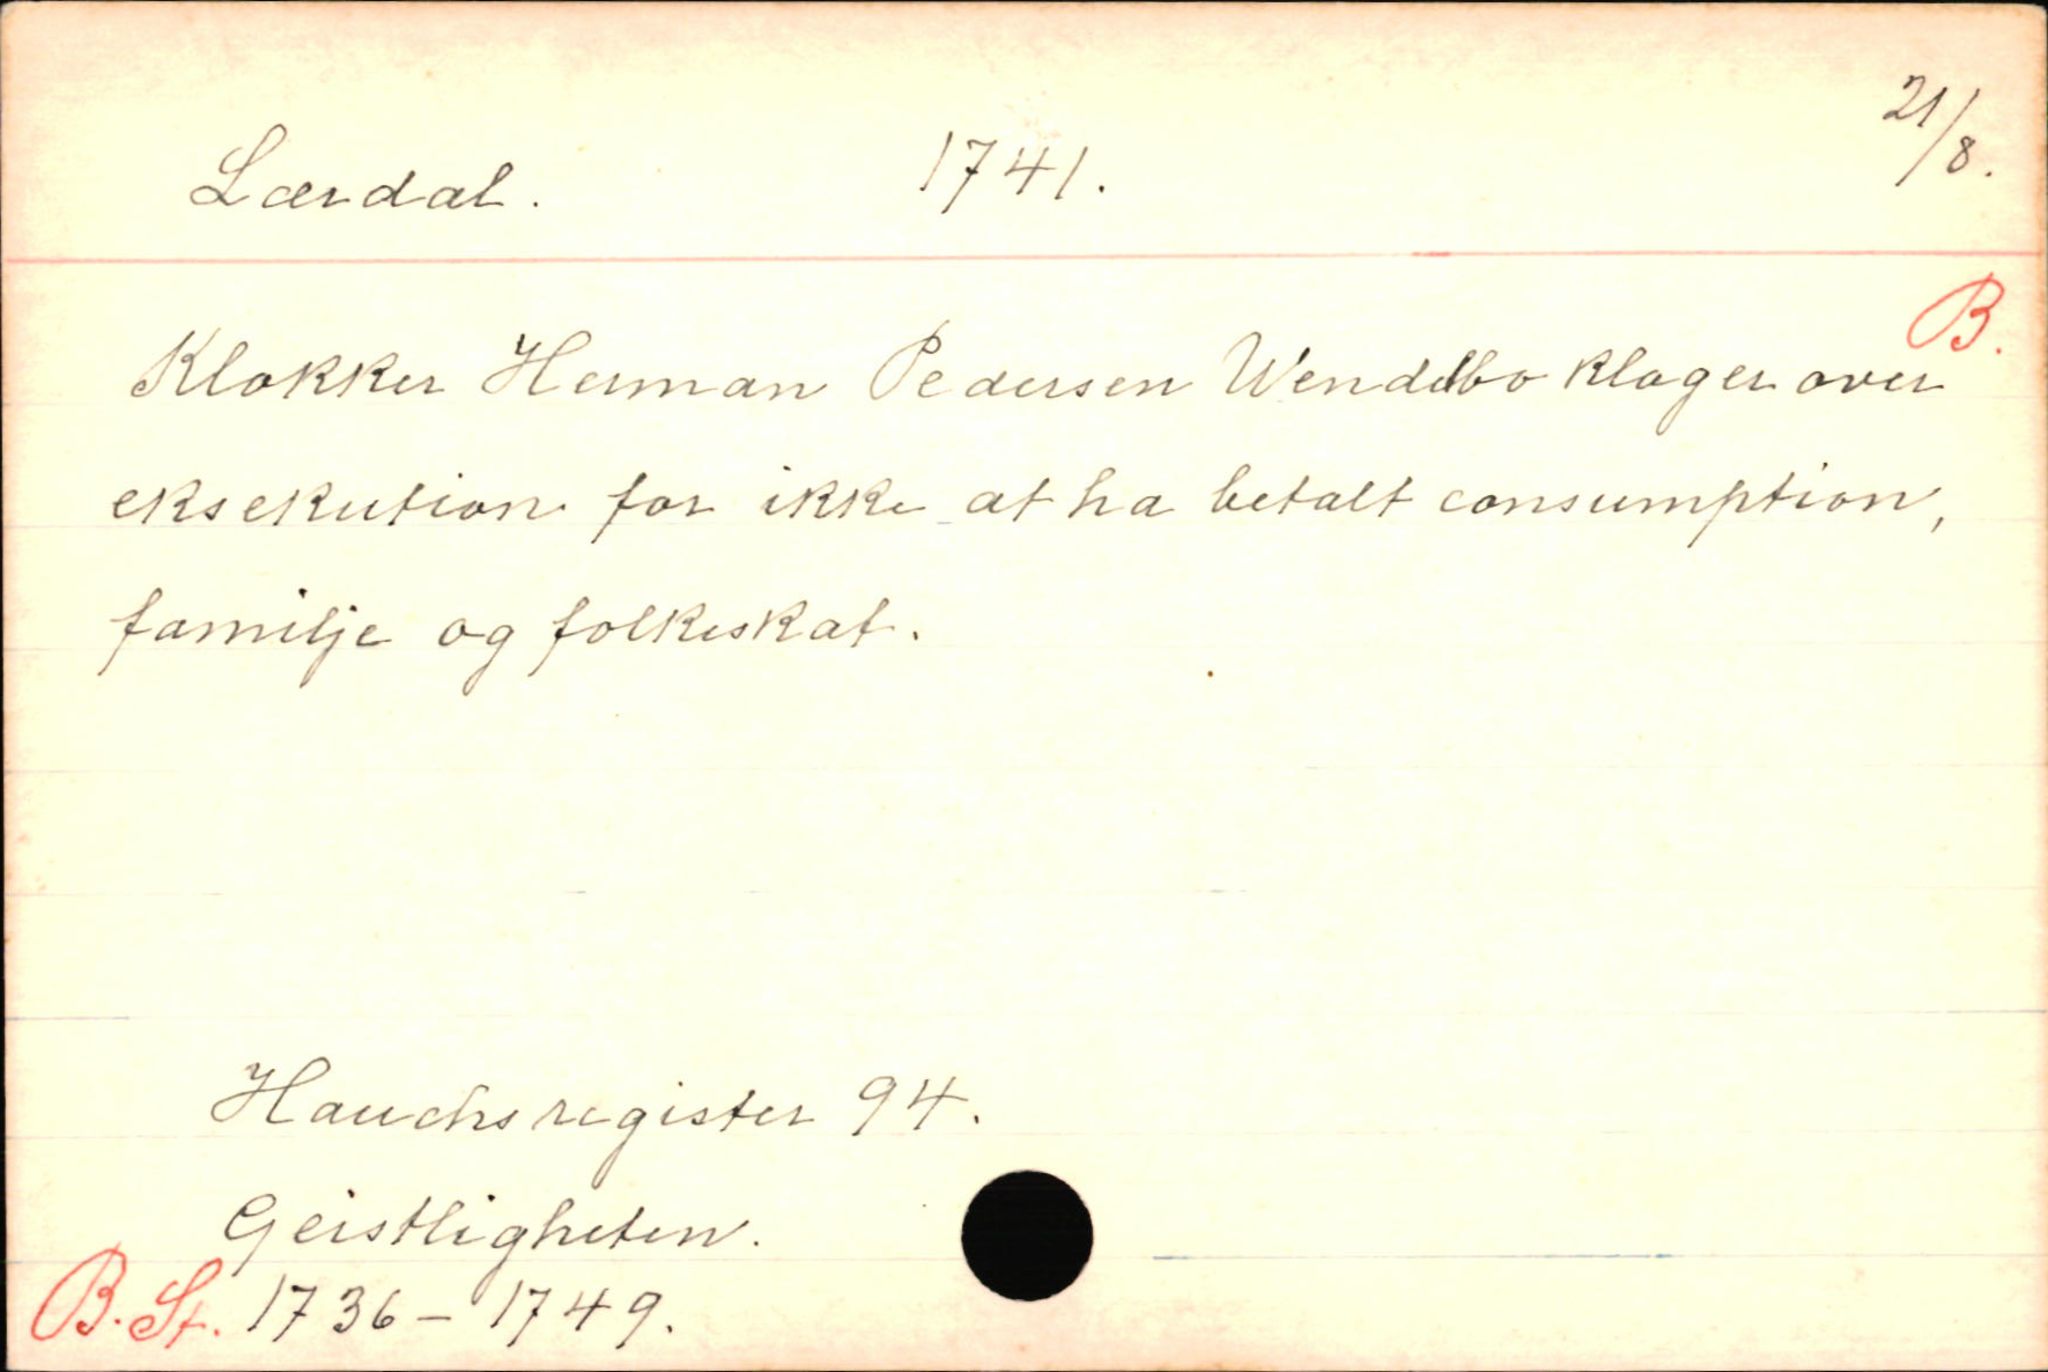 Lærdal. 1741. 21/8.
B.
Klokker Herman Pedersen Wendelbo klager over
eksekution for ikke at ha betalt consumption,
familje og folkeskat.
Hauchsregister 94.
Geistligheten.
B. St. 1736-1749.